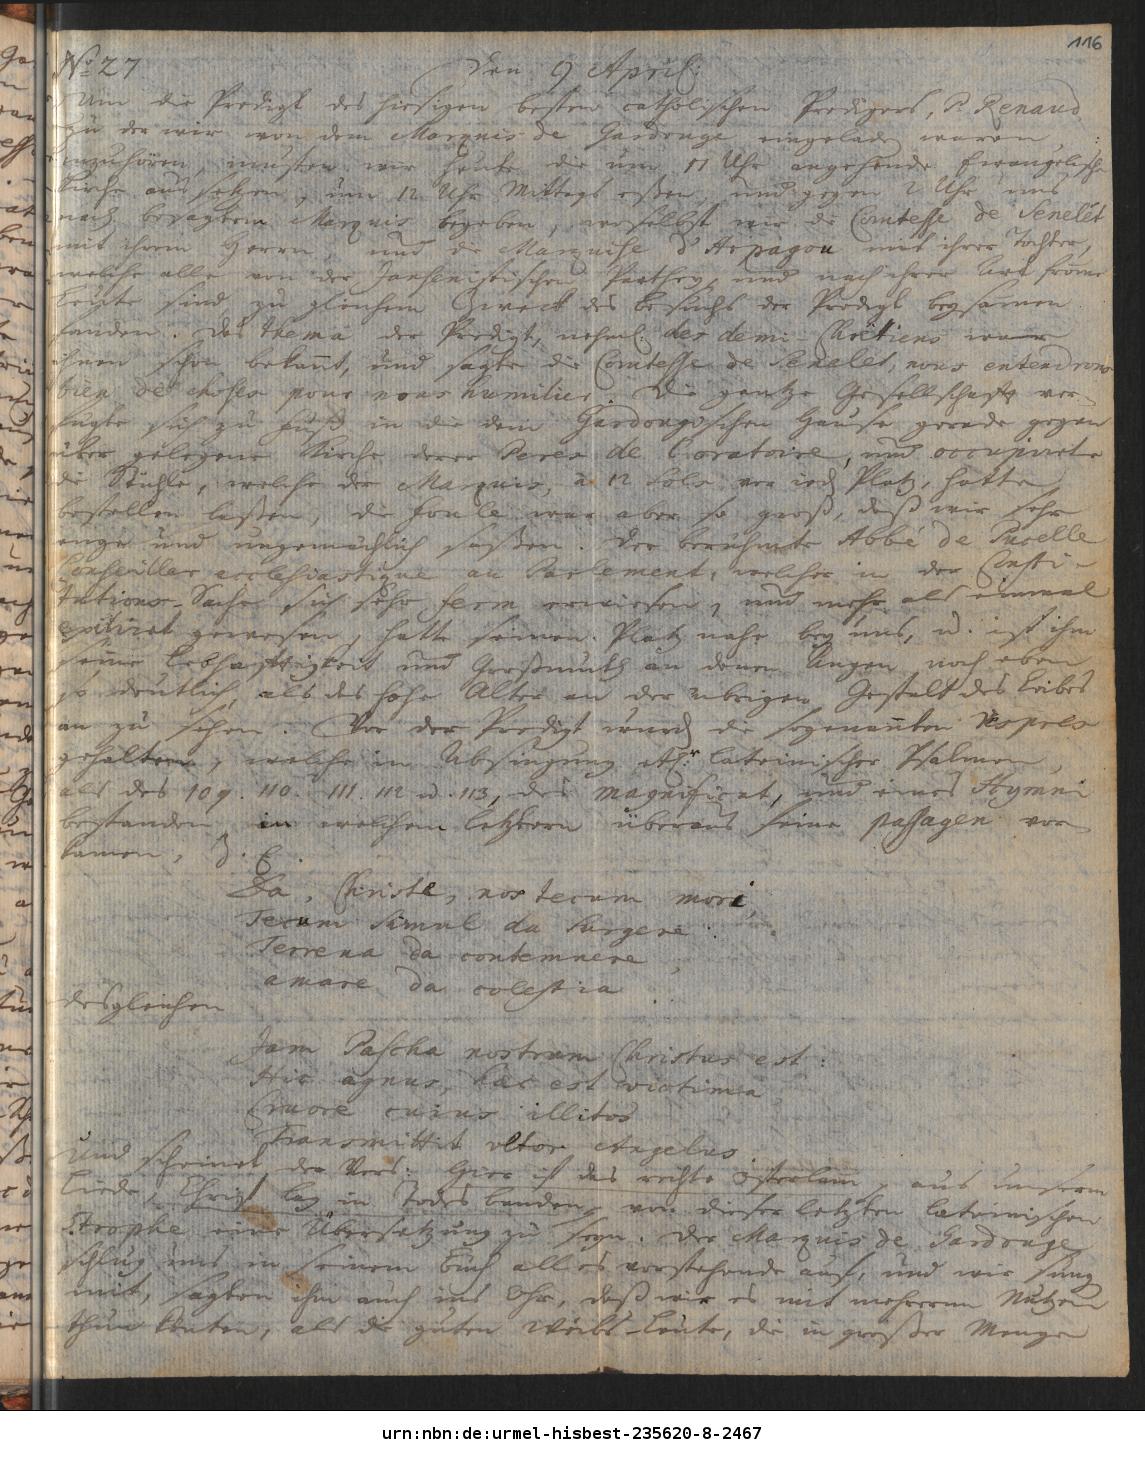 116
No 27
Den 9 April.
Um die Predigt des hiesigen besten catholischen Predigers, P. Renaud
zu der wir von dem Marquis de Gardouge eingeladen waren
anzuhören, musten wir heute die um 11 Uhr angehende Evangelische
Kirche aussetzen, um 12 Uhr Mittags eßen, und gegen 2 Uhr uns
nach besagtem Marquis begeben, woselbst wir die Comtesse de Senelét
mit ihrem Herrn, und die Marquise d'Arpagou mit ihrer Tochter,
welche alle von der Jansenistischen Parthey, und nach ihrer Art fromme
Leute sind zu gleichem Zweck des Besuchs der Predigt beysamen
fanden. Das thema der Predigt, nehml. des demi-Chrêtiens war
ihnen schon bekannt, und sagte die Comtesse de Senelét, nous entendrons
bien de choses pour nous humilier. Die gantze Gesellschafft ver-
fügte sich zu Fuß in die dem Gardougeschen Hause gerade gegen
über gelegene Kirche derer Peres de l'oratoire, und occupirte
die Stühle, welche der Marquis, à 12 Sols vor jed. Platz, hatte
bestellen laßen, die foule war aber so groß, daß wir sehr
enge und ungemächlich saßen. Der berühmte Abbé de Pucelle
Conseiller ecclesiastique au Parlement, welcher in der Consti-
tutions-Sache sich sehr ferm erwiesen, und mehr als einmal
exiliret gewesen, hatte seinen Platz nahe bey uns, u. ist ihm
seine Lebhafftigkeit und Großmuth an denen Augen noch eben
so deutlich, als das hohe Alter an der übrigen Gestalt des Leibes
an zu sehen. Vor der Predigt wurd. die sogenannten Vespers
gehalten, welche in Absingung etl. lateinischer Psalmen,
als des 109. 110. 111. 112 u. 113, des magnificat, und eines Hymni
bestanden, in welchem letztern überaus feine passagen vor
kamen, z. E.
Da, Christe, nos tecum mori,
Tecum simul da surgere:
Terrena da contemnere,
amare da coelestia.
desgleichen
Jam Pascha nostrum Christus est:
Hic agnus, haec est victima
Cruore cuius illitos
Transmittit ultor Angelus.
Und scheinet der Vers: Hier ist das rechte Osterlam, aus unserm
Liede, Christ lag in Todes banden, von dieser letzten lateinischen
Strophe eine Übersetzung zu seyn. Der Marquis de Gardouge
schlug uns in seinem Buch alles vorstehende auf, und wir sung.
mit, sagten ihm auch ins Ohr, daß wir es mit mehrerem Nutzen
thun könten, als die guten Weibs-Leute, die in großer Menge
urn:nbn:de:urmel-hisbest-235620-8-2467